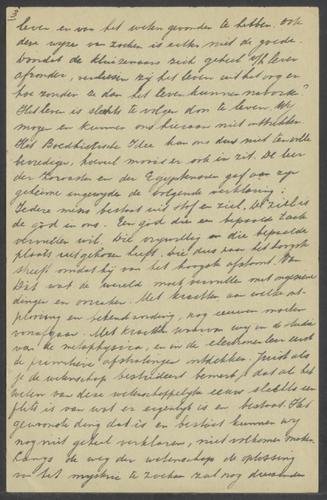 3
leven en van het weten gevonden te hebben. Ook
deze wijze van zoeken is echter niet de goede.
Doordat de kluizenaars zich geheel v/h leven
afzonderen, verliezen zij het leven uit het oog en
hoe zonder ze dan het leven kunnen
Het leven is slechts te volgen door te leven. Wij
mogen en kunnen ons hieraan niet onttrekken.
Het Boedhistische Idee kan ons dus niet ten volle
bevredigen, hoewel moois er ook in zit. De leer
der en der Egyptenaren gaf aan zijn
geheime ingewijde de volgende verklaring:
Iedere mens bestaat uit stof en ziel. De ziel is
de god in ons. Een god die een bepaalde taak
vervullen wil. Die zorgvuldig en die bepaalde
plaats uitgekozen heeft. die dus naar het hoogste
streeft omdat hij van het hoogste afstamt. Van
Dit is de wereld met
dingen en oorzaken. Met krachten aan welke op-
lossing en bekendwording, nog eeuwen moeten
voorafgaan. Met krachten waarvan wij in de studie
van de metaphysica, en in de electronenleer eerst
de primitieve ontdekken. Juist als
je de wetenschap bestudeert bemerk je dat al het
weten van deze wetenschappelijke eeuw slechts een
flits is van wat er eigenlijk is en bestaat. Het
gewoonste ding dat is en bestaat kunnen wij
nog niet geheel verklaren, niet volkomen maken.
Langs de weg der wetenschap de oplossing
van het mysterie te zoeken zal nog duizenden